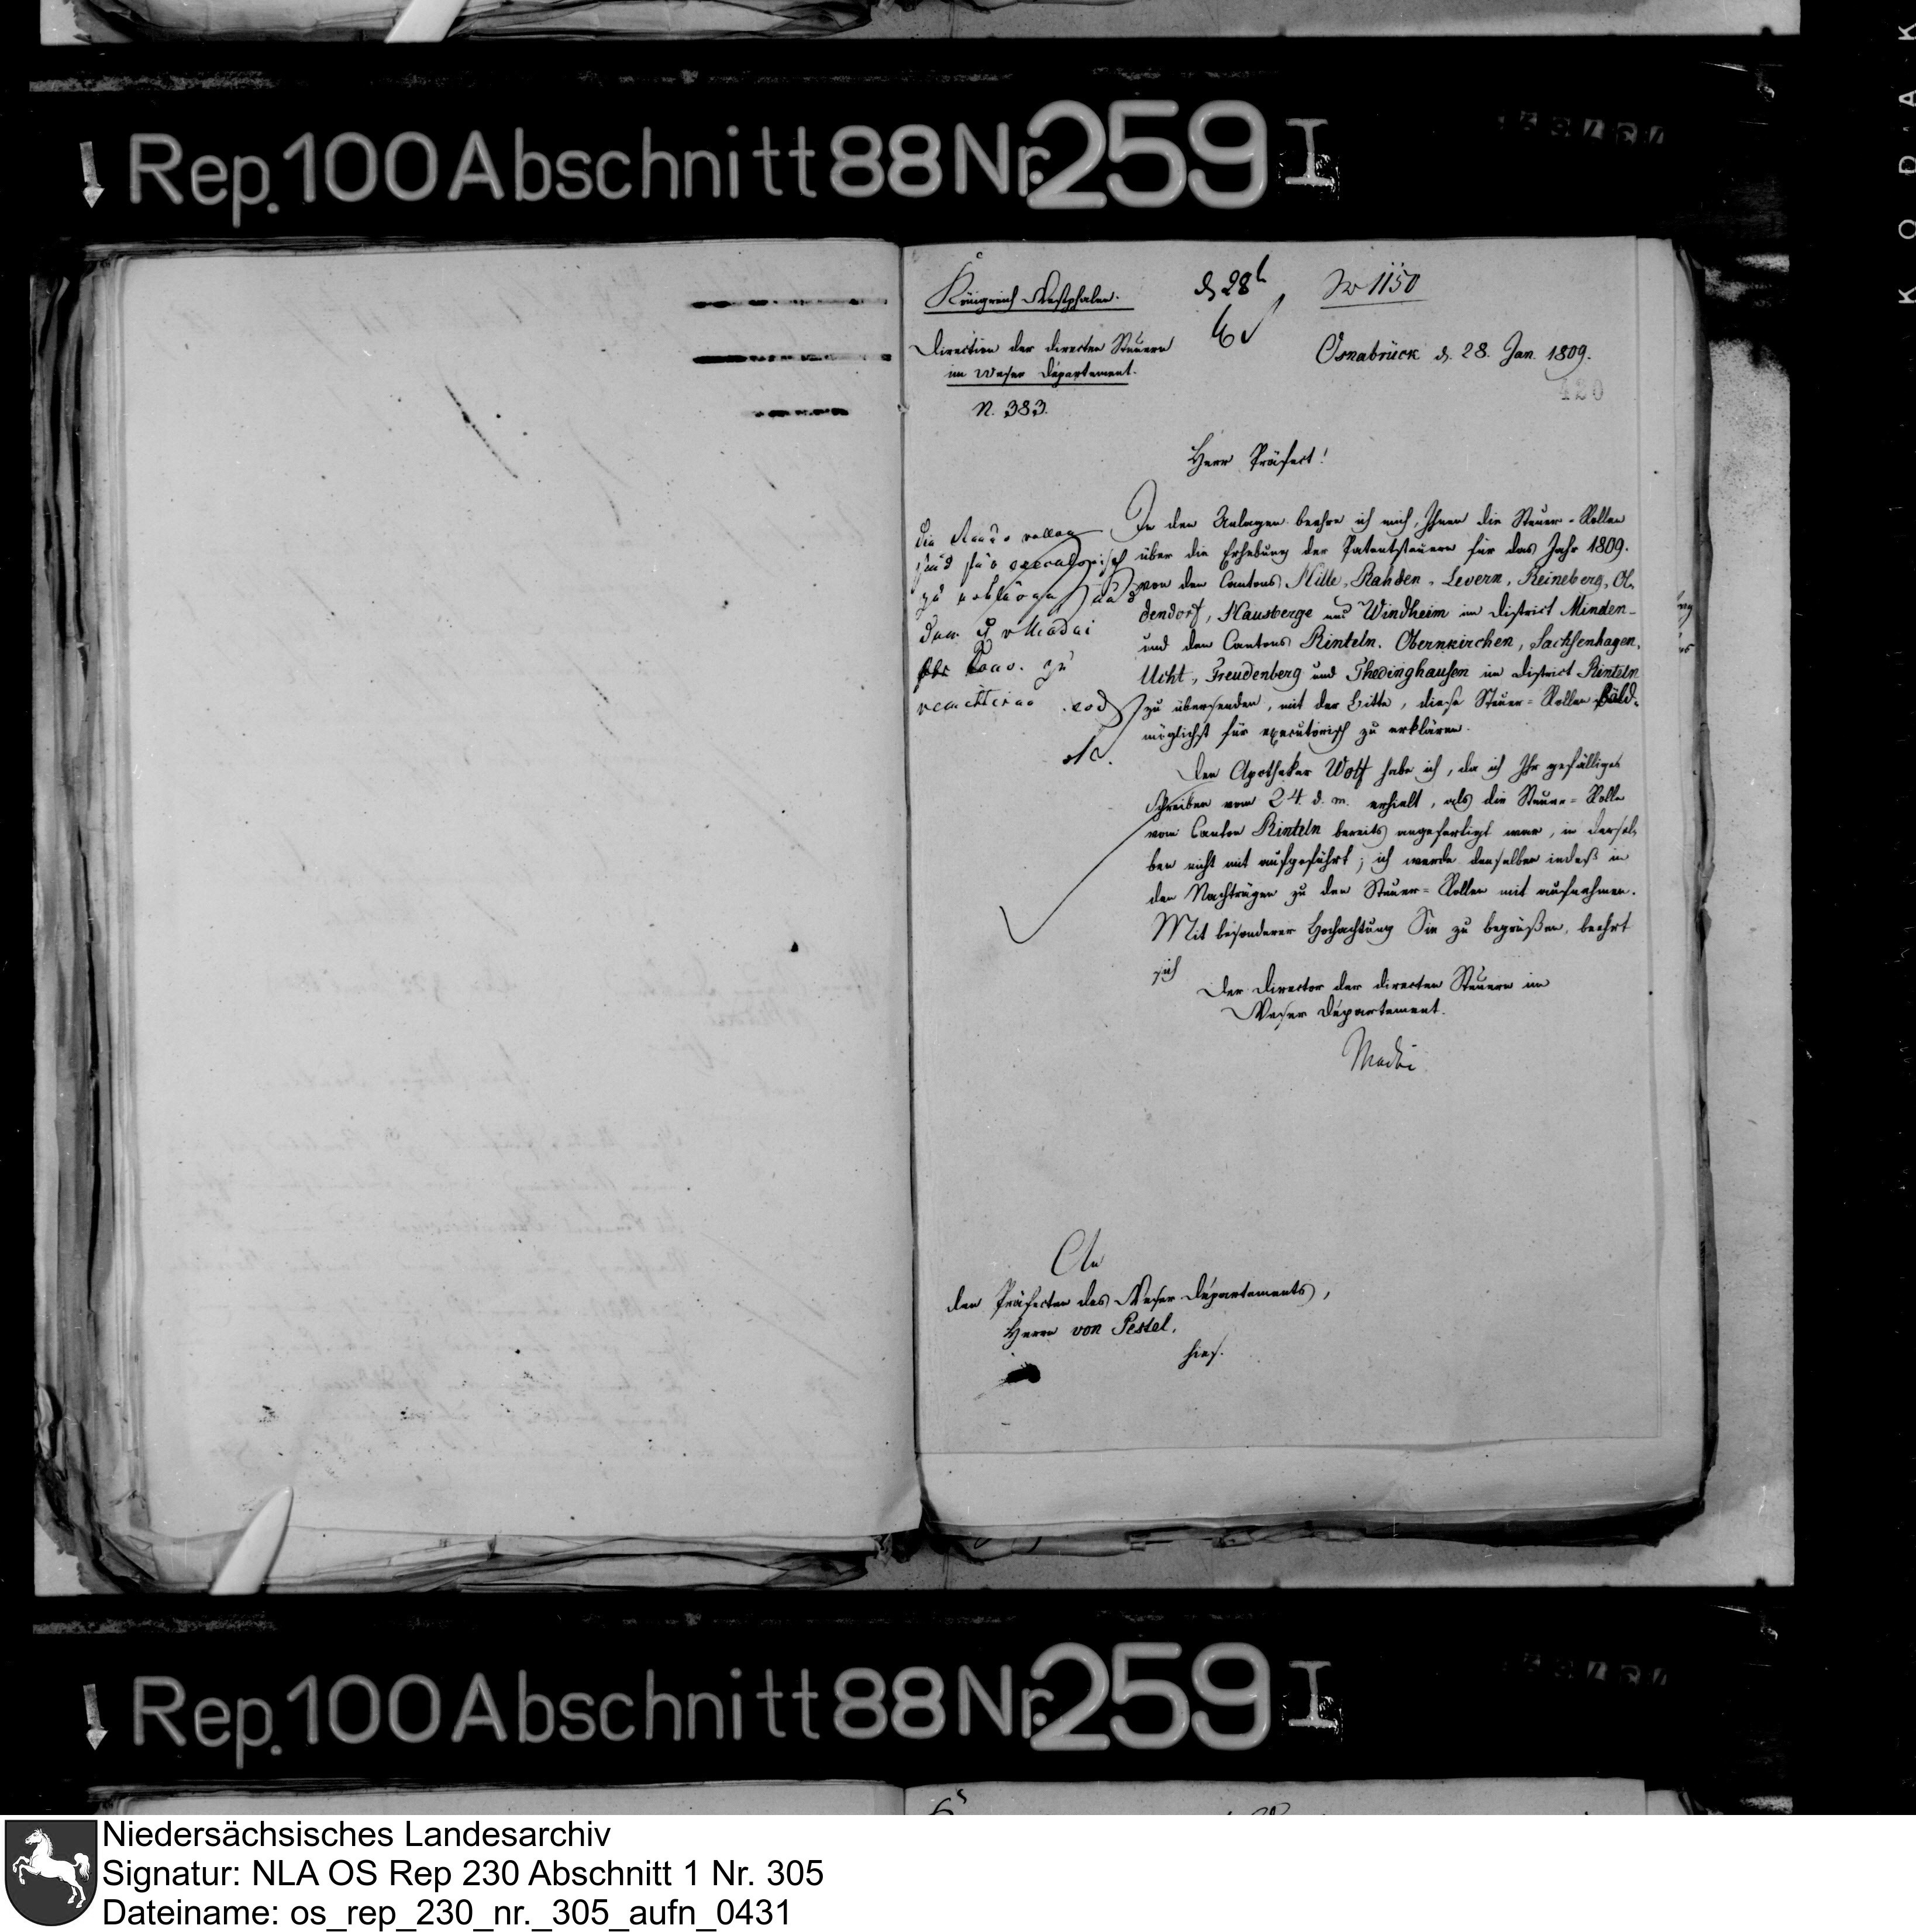 KODAK
Rep. 100 Abschnitt 88 Nr. 259 I
Königreich Westphalen.
d 28t
No 1150
Direction der directen Steuern
im Weser Departement.
Osnabrück d. 28. Jan. 1809.
420
N. 383.
Herr Präfect!
In den Anlagen beehre ich mich, Ihnen die Steuer-Rollen
über die Erhebung der Patentsteuern für das Jahr 1809.
von den Cantons Hille, Rahden, Levern, Reineberg, Ol-
dendorf, Hausberge und Windheim im District Minden
und den Cantons Rinteln, Obernkirchen, Sachsenhagen,
Ucht, Freudenberg und Thedinghausen im District Rinteln
zu übersenden, mit der Bitte, diese Steuer-Rollen bald-
möglichst für executorisch zu erklären.
Den Apotheker Wolf habe ich, da ich Ihr gefälliges
Schreiben vom 24. d. m. erhielt, als die Steuer-Rolle
vom Canton Rinteln bereits angefertigt war, in dersel-
ben nicht mit aufgeführt; ich werde denselben indeß in
den Nachträgen zu den Steuer-Rollen mit aufnehmen.
Mit besonderer Hochachtung Sie zu begrüßen, beehrt
sich
Der Director der directen Steuern im
Weser Departement.
die Steuerrollen
sind für executorisch
zu erklären und
dem H v Madai
zu
An
den Präfecten des Weser Departements,
Herrn von Pestel,
hies.
Rep. 100 Abschnitt 88 Nr. 259 I
Niedersächsisches Landesarchiv
Signatur: NLA OS Rep 230 Abschnitt 1 Nr. 305
Dateiname: os_rep_230_nr._305_aufn_0431